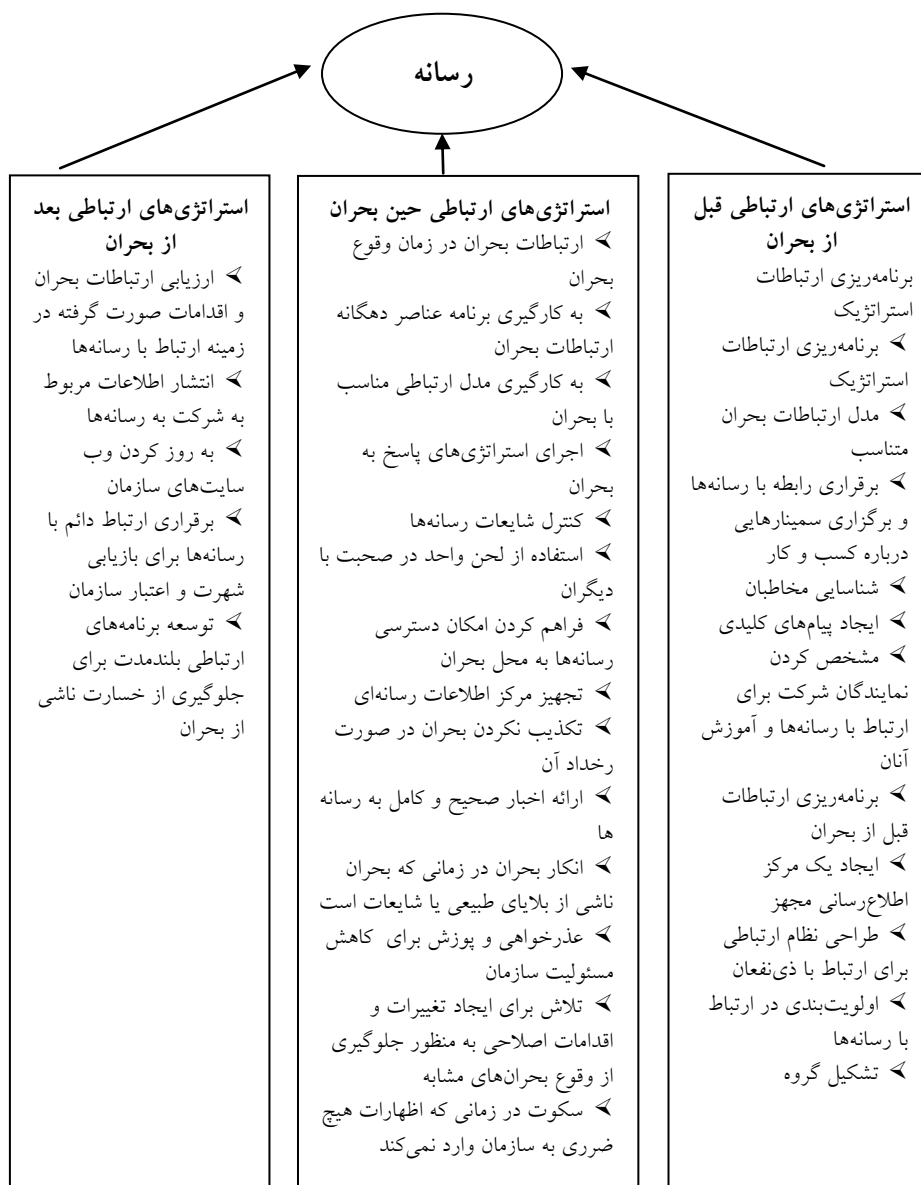 رسانه
استراتژی‌های ارتباطی قبل
از بحران
برنامه‌ریزی ارتباطات
استراتژیک
⮜ برنامه‌ریزی ارتباطات
استراتژیک
⮜ مدل ارتباطات بحران
متناسب
⮜ برقراری رابطه با رسانه‌ها
و برگزاری سمینارهایی
درباره کسب و کار
⮜ شناسایی مخاطبان
⮜ ایجاد پیام‌های کلیدی
⮜ مشخص کردن
نمایندگان شرکت برای
ارتباط با رسانه‌ها و آموزش
آنان
⮜ برنامه‌ریزی ارتباطات
قبل از بحران
⮜ ایجاد یک مرکز
اطلاع‌رسانی مجهز
⮜ طراحی نظام ارتباطی
برای ارتباط با ذی‌نفعان
⮜ اولویت‌بندی در ارتباط
با رسانه‌ها
⮜ تشکیل گروه
استراتژی‌های ارتباطی حین بحران
⮜ ارتباطات بحران در زمان وقوع
بحران
⮜ به کارگیری برنامه عناصر دهگانه
ارتباطات بحران
⮜ به کارگیری مدل ارتباطی مناسب
با بحران
⮜ اجرای استراتژی‌های پاسخ به
بحران
⮜ کنترل شایعات رسانه‌ها
⮜ استفاده از لحن واحد در صحبت با
دیگران
⮜ فراهم کردن امکان دسترسی
رسانه‌ها به محل بحران
⮜ تجهیز مرکز اطلاعات رسانه‌ای
⮜ تکذیب نکردن بحران در صورت
رخداد آن
⮜ ارائه اخبار صحیح و کامل به رسانه
ها
⮜ انکار بحران در زمانی که بحران
ناشی از بلایای طبیعی یا شایعات است
⮜ عذرخواهی و پوزش برای کاهش
مسئولیت سازمان
⮜ تلاش برای ایجاد تغییرات و
اقدامات اصلاحی به منظور جلوگیری
از وقوع بحران‌های مشابه
⮜ سکوت در زمانی که اظهارات هیچ
ضرری به سازمان وارد نمی‌کند
استراتژی‌های ارتباطی بعد
از بحران
⮜ ارزیابی ارتباطات بحران
و اقدامات صورت گرفته در
زمینه ارتباط با رسانه‌ها
⮜ انتشار اطلاعات مربوط
به شرکت به رسانه‌ها
⮜ به روز کردن وب
سایت‌های سازمان
⮜ برقراری ارتباط دائم با
رسانه‌ها برای بازیابی
شهرت و اعتبار سازمان
⮜ توسعه برنامه‌های
ارتباطی بلندمدت برای
جلوگیری از خسارت ناشی
از بحران